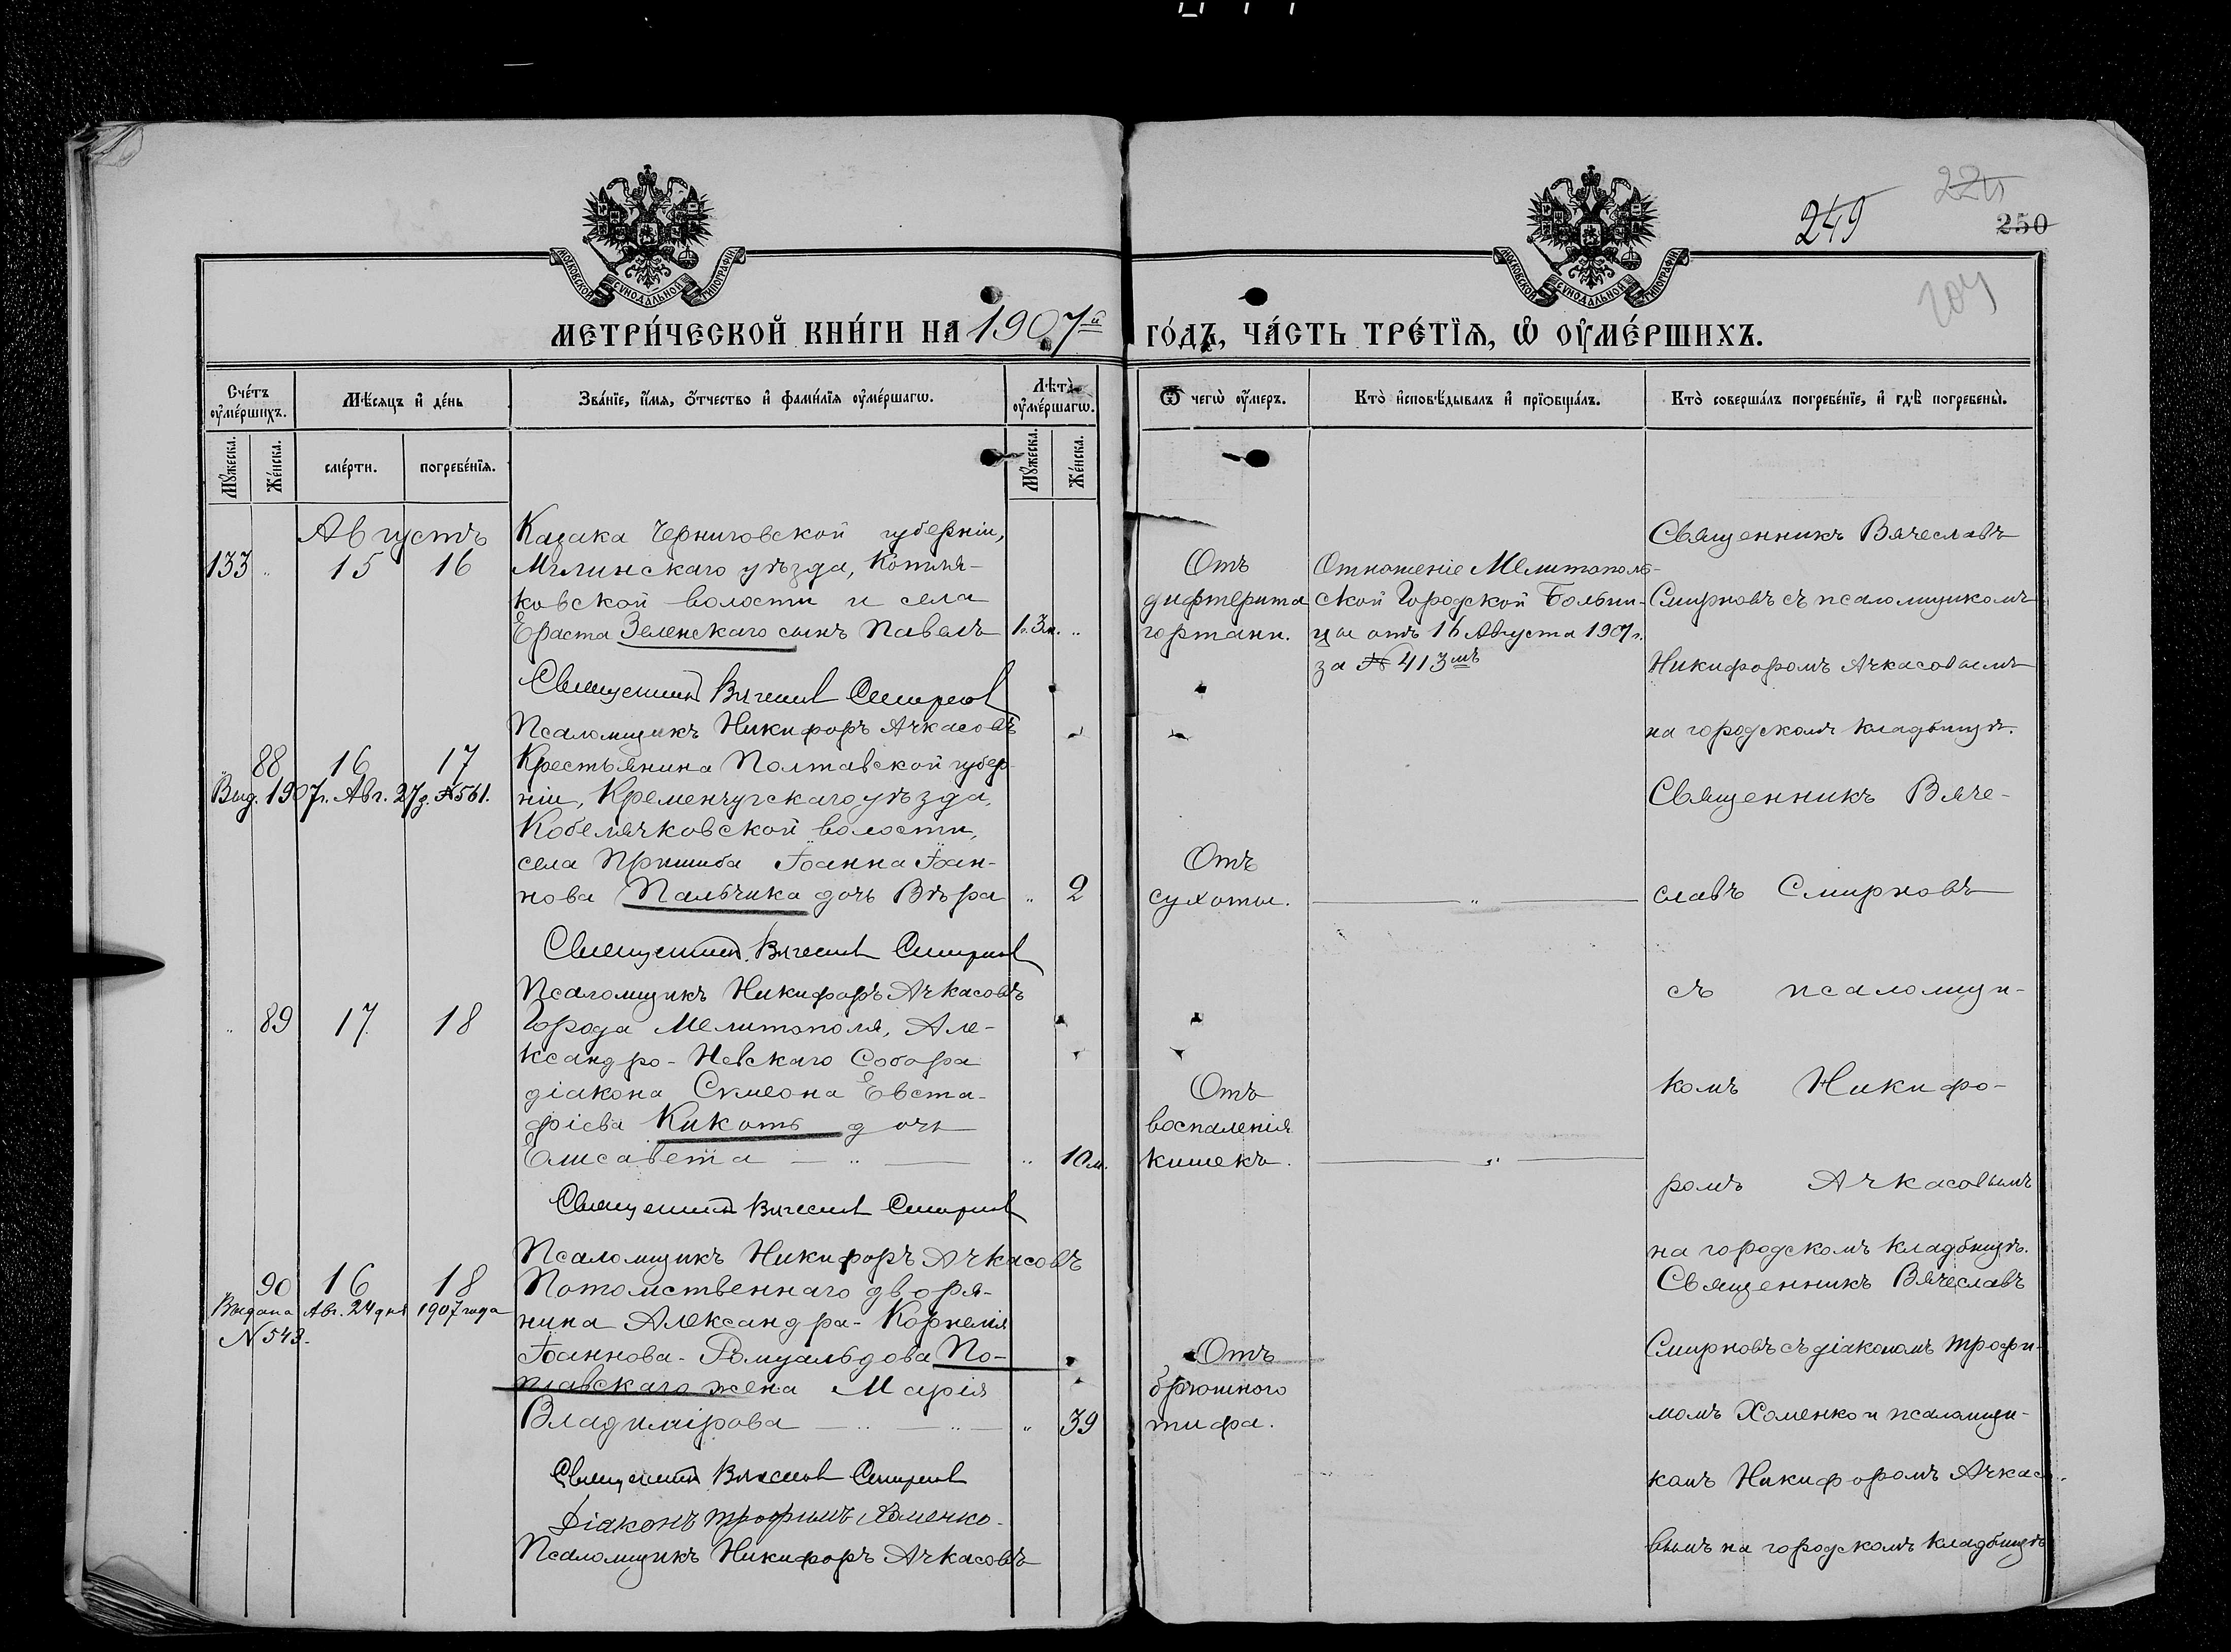 249
224
250
204
МОСКОВСКОЙ СѴНОДАЛЬНОЙ ТИПОГРАФІИ.
МОСКОВСКОЙ СѴНОДАЛЬНОЙ ТИПОГРАФІИ.
МЕТРИ́ЧЕСКОЙ КНИ́ГИ НА 1907й ГО́ДЪ, ЧА́СТЬ ТРЕ́ТЇѦ, Ѡ҆ ОУ҆МЕ́РШИХЪ.
Сче́тъ оу҆ме́ршихъ.
Мѣ́сяцъ и҆ де́нь
Зва́нїе, и҆́мя, о҆́тчество и҆ фами́лїя оу҆ме́ршагѡ.
Лѣ́та оу҆ме́ршагѡ.
Ѿ чегѡ̀ оу҆́меръ.
Кто̀ и҆сповѣ́дывалъ и҆ прїѡбща́лъ.
Кто̀ соверша́лъ погребе́нїе, и҆ гдѣ̀ погребены̀.
Мꙋ́жеска.
Же́нска.
сме́рти.
погребе́нїя.
Мꙋ́жеска.
Же́нска.
Августъ
133 „ 15 16
Казака Черниговской губерніи,
Мглинскаго уѣзда, Котля-
ковской волости и села
Ераста Зеленскаго сынъ Павелъ 1г. 3м. „
Отъ
дифтерита
гортани.
Отношеніе Мелитополь-
ской Городской Больни-
цы отъ 16 Августа 1907 г.
за № 413мъ
Священникъ Вячеславъ
Смирновъ съ псаломщикомъ
Никифоромъ Ачкасовымъ
на городскомъ кладбищѣ.
Священникъ Вячеслав Смирнов
Псаломщикъ Никифоръ Ачкасовъ
„ 88 16 17
Выд. 1907г. Авг. 27д. № 561.
Крестьянина Полтавской губер-
ніи, Кременчугскаго уѣзда,
Кобелячковской волости,
села Пришиба Іоанна Іоан-
нова Пальчика дочь Вѣра „ 2
Отъ
сухоты.
„
Священникъ Вяче-
славъ Смирновъ
съ псаломщи-
комъ Никифо-
ромъ Ачкасовымъ
на городскомъ кладбищѣ.
Священникъ Вячеслав Смирнов
Псаломщикъ Никифоръ Ачкасовъ
„ 89 17 18
Города Мелитополя, Але-
ксандро-Невскаго Собора
діакона Сѵмеона Евста-
фіева Кикоть дочь
Елисавета — „ — „ 10 м.
Отъ
воспаленія
кишекъ.
„
Священникъ Вячеслав Смирнов
Псаломщикъ Никифоръ Ачкасовъ
90 16 18
Выдана Авг. 24 дня 1907 года
N 543.
Потомственнаго дворя-
нина Александра-Корнелія
Іоаннова-Ромуальдова По-
плавскаго жена Марія
Владимірова — „ — „ — „ 39
Отъ
брюшного
тифа.
Священникъ Вячеславъ
Смирновъ съ діакономъ Трофи-
момъ Хоменко и псаломщи-
комъ Никифоромъ Ачкасо-
вымъ на городскомъ кладбищѣ
Священникъ Вячеслав Смирнов
Діаконъ Трофимъ Хоменко.
Псаломщикъ Никифоръ Ачкасовъ